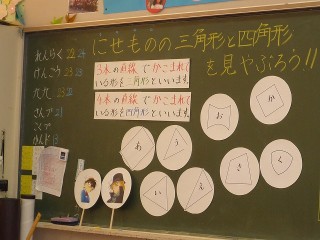 にせものの三角形と四角形
を見やぶろう!!
れんらく 23 24
けんこう 23 23
九九 23 23
3本の直線でかこまれて
いる形を三角形といいます。
4本の直線でかこまれて
いる形を四角形といいます。
お
か
あ
う
い
え
き
く